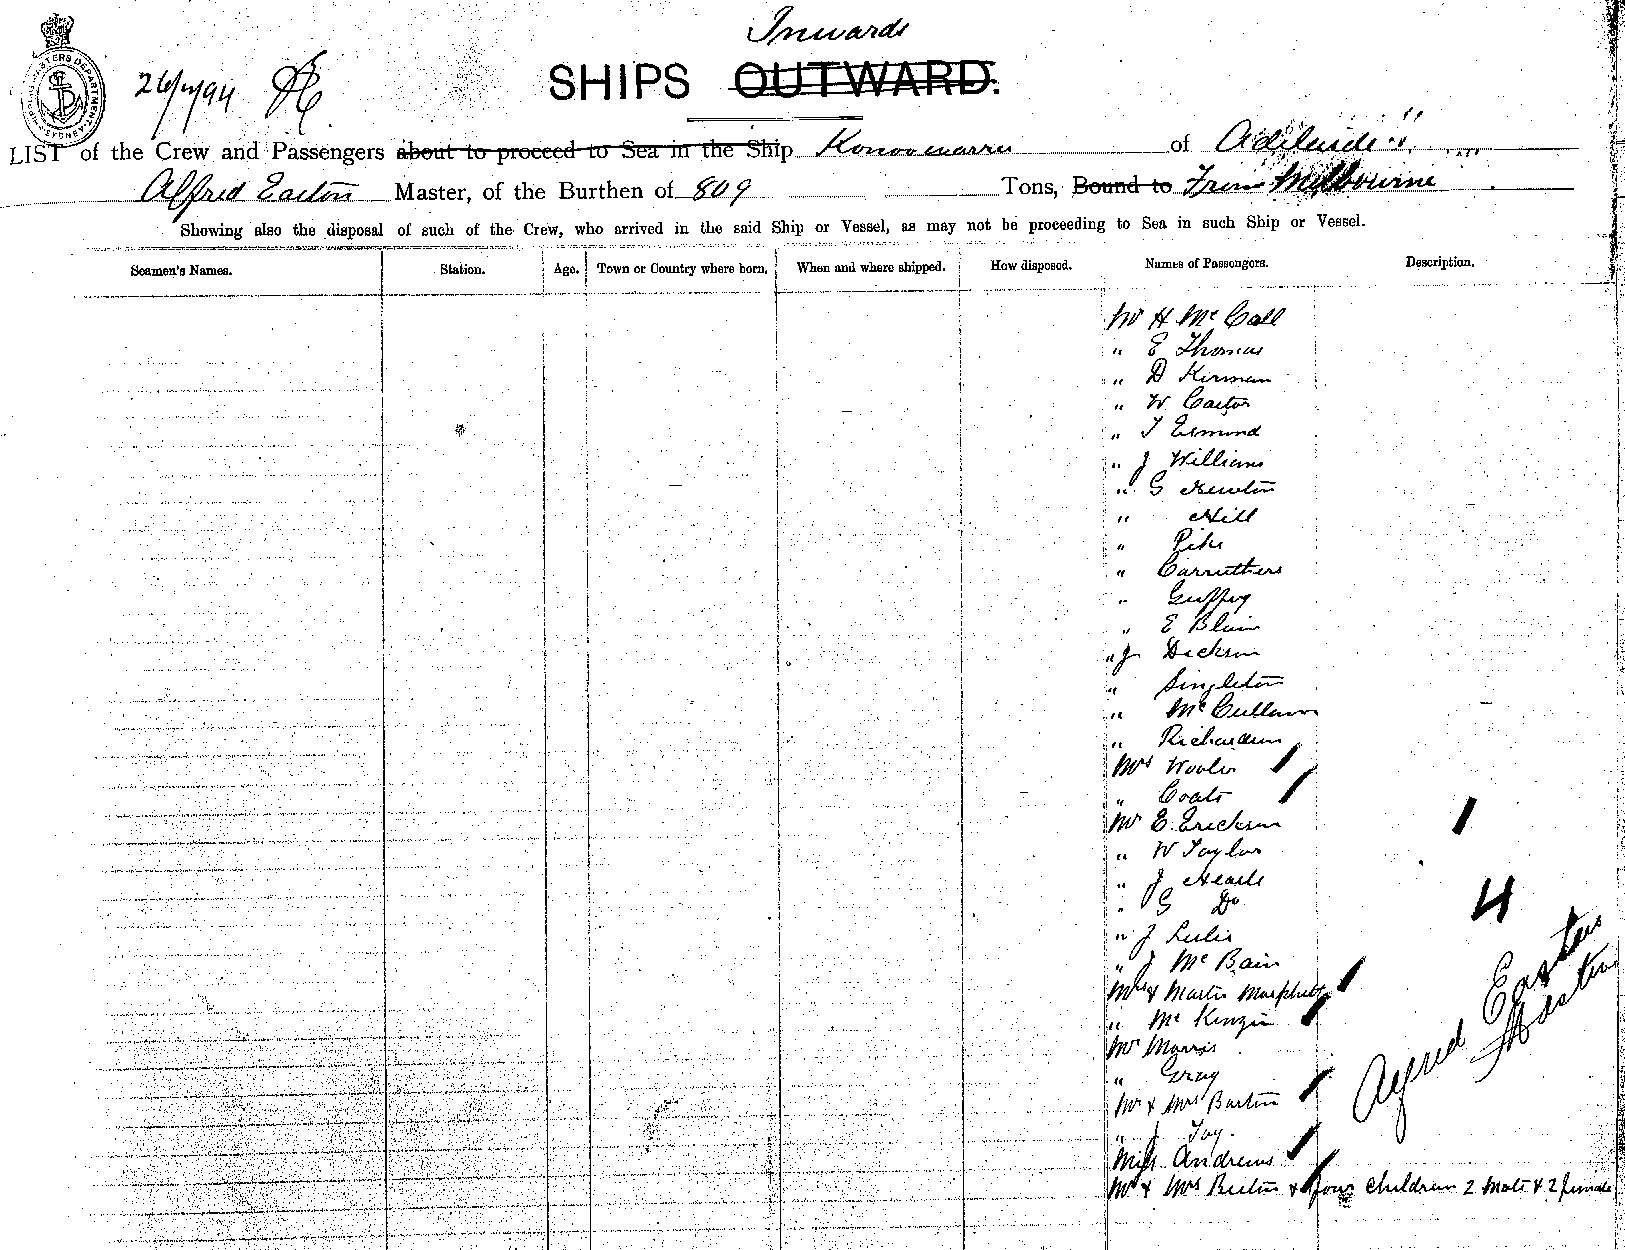 Inwards
SHIPS OUTWARD.
26/ /94
LIST of the Crew and Passengers about to proceed to Sea in the Ship Konoowarra of Adelaide
Alfred Easton Master, of the Burthen of 809 Tons, Bound to From Melbourne
Showing also the disposal of such of the Crew, who arrived in the said Ship or Vessel, as may not be proceeding to Sea in such Ship or Vessel.
Seamen's Names. Station. Age. Town or Country where born. When and where shipped. How disposed. Names of Passengers. Description.
Mr H McCall
" E Thomas
" D Kirman
" W Carter
" T Esmond
" J Williams
" G Newton
" Hill
" Pike
" Carruthers
" Guppy
" E Blain
" J Dickson
" Singleton
" McCullum
" Richardson
Mrs
" Coats
Mr E Erickson
" W Taylor
" J Hearle
" G Do
" J Leslie
" J McBain
Mrs & Master Morphett
" McKenzie
Mr Morris
" Gray
Mr & Mrs Barton
" Foy
Miss Andrews
Mr & Mrs Beeton & four children 2 male & 2 female
1
4
Alfred Easton
Master